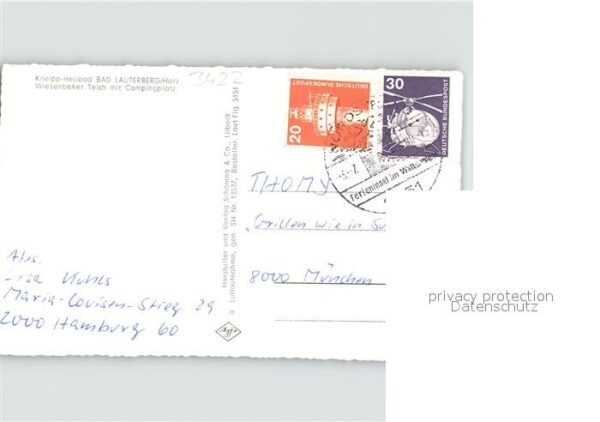 Kneipp-Heilbad BAD LAUTERBERG/Harz
Wiesenbeker Teich mit Campingplatz
3422
Hersteller und Verlag Schöning & Co., Lübeck
Luftaufnahme, gen. SH Nr. 13527, Besteller, Lauf Flg. 5151
20
DEUTSCHE BUNDESPOST
30
DEUTSCHE BUNDESPOST
Ferieninsel im
THOMY
„Grillen wie in
8000 München
Abs.
Lisa Kuhls
Maria-Louisen-Stieg 29
2000 Hamburg 60
privacy protection
Datenschutz